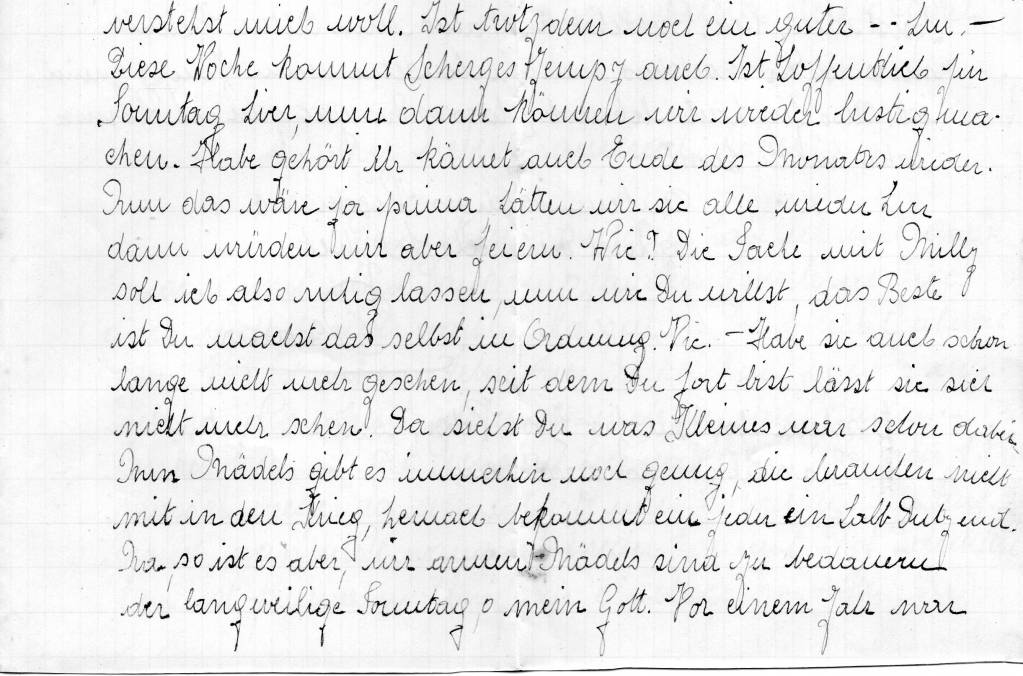 verstehst mich wohl. Ist trotzdem noch ein guter --
Diese Woche kommt Scherges Jempy auch. Ist hoffentlich für
Sonntag hier, nun dann können wir wieder lustig ma-
chen. Habe gehört Ihr kämet auch Ende des Monats wieder.
Nun das wäre ja prima, hätten wir sie alle wieder hier
dann würden wir aber feiern. Wie? Die Sache mit Milly
soll ich also ruhig lassen, nun wie Du willst, das Beste
ist Du machst das selbst in Ordnung. Vic. - Habe sie auch schon
lange nicht mehr gesehen, seit dem Du fort bist lässt sie sich
nicht mehr sehen. Da siehst Du was Kleines war schon dabei.
Nun Mädels gibt es immerhin noch genug, die brauchen nicht
mit in den Krieg, hernach bekommt ein jeder ein halb Dutzend.
Na, so ist es aber, wir armen Mädels sind zu bedauern
der langweilige Sonntag, o mein Gott. Vor einem Jahr war